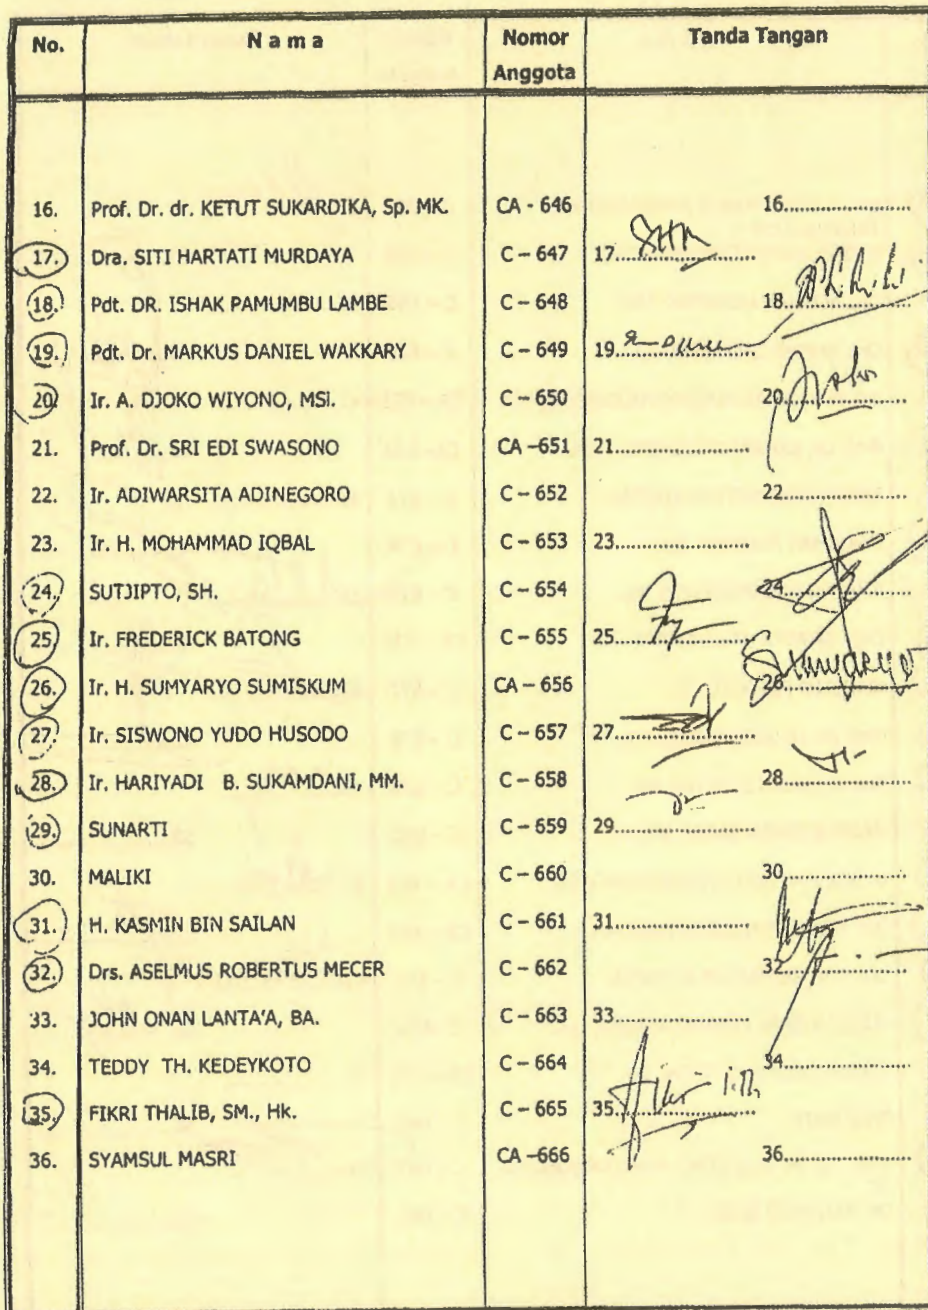 No. Nama Nomor Anggota Tanda Tangan
16. Prof. Dr. dr. KETUT SUKARDIKA, Sp. MK. CA - 646 16..................
17. Dra. SITI HARTATI MURDAYA C – 647 17..................
18. Pdt. DR. ISHAK PAMUMBU LAMBE C – 648 18..................
19. Pdt. Dr. MARKUS DANIEL WAKKARY C – 649 19..................
20. Ir. A. DJOKO WIYONO, MSI. C – 650 20..................
21. Prof. Dr. SRI EDI SWASONO CA –651 21..................
22. Ir. ADIWARSITA ADINEGORO C – 652 22..................
23. Ir. H. MOHAMMAD IQBAL C – 653 23..................
24. SUTJIPTO, SH. C – 654 24..................
25. Ir. FREDERICK BATONG C – 655 25..................
26. Ir. H. SUMYARYO SUMISKUM CA – 656 26.................. Sumyaryo
27. Ir. SISWONO YUDO HUSODO C – 657 27..................
28. Ir. HARIYADI B. SUKAMDANI, MM. C – 658 28..................
29. SUNARTI C – 659 29..................
30. MALIKI C – 660 30..................
31. H. KASMIN BIN SAILAN C – 661 31..................
32. Drs. ASELMUS ROBERTUS MECER C – 662 32..................
33. JOHN ONAN LANTA'A, BA. C – 663 33..................
34. TEDDY TH. KEDEYKOTO C – 664 34..................
35. FIKRI THALIB, SM., Hk. C – 665 35..................
36. SYAMSUL MASRI CA –666 36..................